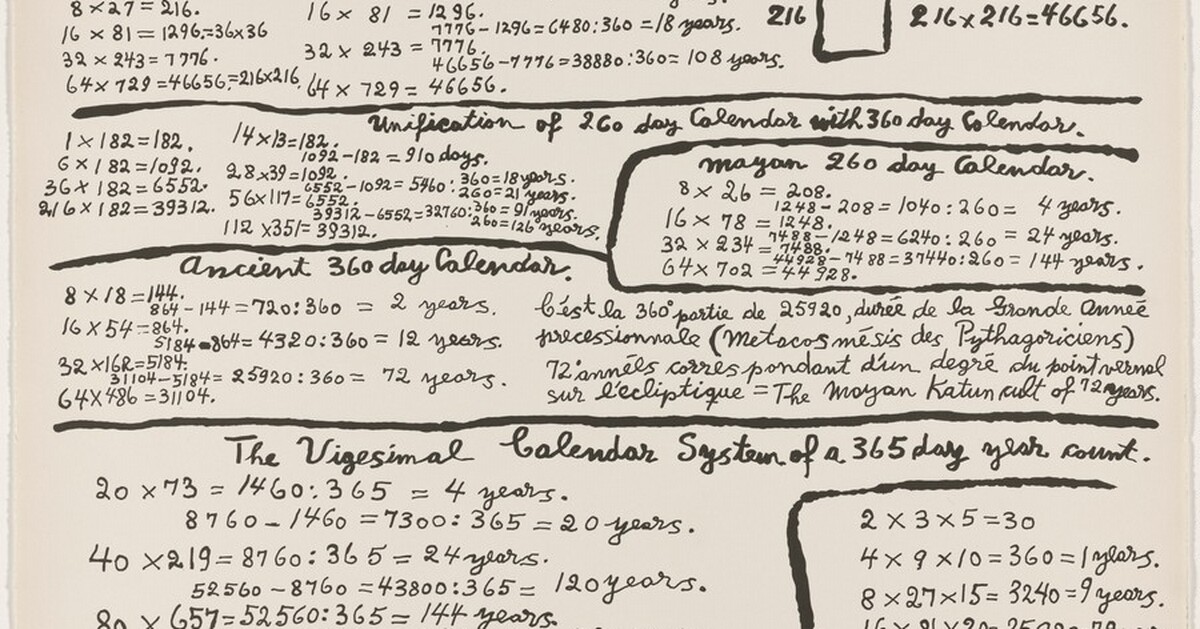 8 × 27 = 216.
16 × 81 = 1296.=36×36
32 × 243 = 7776.
64 × 729 = 46656.=216×216.
16 × 81 = 1296.
7776 – 1296 = 6480:360 = 18 years.
32 × 243 = 7776.
46656 – 7776 = 38880:360 = 108 years.
64 × 729 = 46656.
216
216×216=46656.
Unification of 260 day Calendar with 360 day Calendar.
1 × 182 = 182.
6 × 182 = 1092.
36 × 182 = 6552.
216 × 182 = 39312.
14 × 13 = 182.
1092 – 182 = 910 days.
28 × 39 = 1092.
6552 – 1092 = 5460: 360 = 18 years.
260 = 21 years.
56 × 117 = 6552.
39312 – 6552 = 32760: 360 = 91 years.
260 = 126 years.
112 × 351 = 39312.
Mayan 260 day Calendar.
8 × 26 = 208.
1248 – 208 = 1040:260 = 4 years.
16 × 78 = 1248.
7488 – 1248 = 6240:260 = 24 years.
32 × 234 = 7488.
44928 – 7488 = 37440:260 = 144 years.
64 × 702 = 44928.
Ancient 360 day Calendar.
8 × 18 = 144.
864 – 144 = 720:360 = 2 years.
16 × 54 = 864.
5184 – 864 = 4320:360 = 12 years.
32 × 162 = 5184.
31104 – 5184 = 25920:360 = 72 years.
64 × 486 = 31104.
C'est la 360° partie de 25920, durée de la Grande Anneé
precessionnale (Metacosmésis des Pythagoriciens)
72 années correspondant d'un degré du point vernal
sur l'ecliptique = The Mayan Katun cult of 72 years.
The Vigesimal Calendar System of a 365 day year count.
20 × 73 = 1460:365 = 4 years.
8760 – 1460 = 7300:365 = 20 years.
40 × 219 = 8760:365 = 24 years.
52560 – 8760 = 43800:365 = 120 years.
80 × 657 = 52560:365 = 144 years.
2 × 3 × 5 = 30
4 × 9 × 10 = 360 = 1 years.
8 × 27 × 15 = 3240 = 9 years.